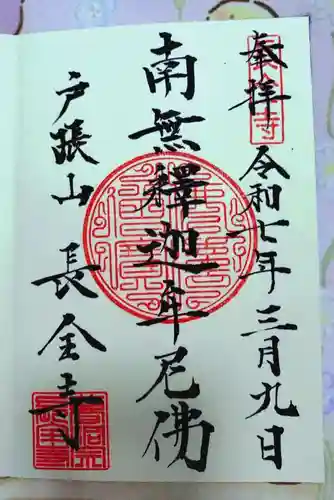 奉拝
令和七年三月九日
南無釋迦牟尼佛
戸張山
長全寺